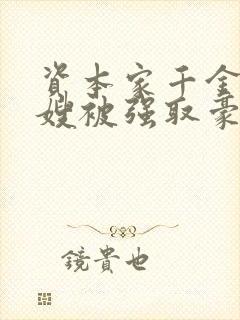 资本家千金
嫂被强取豪
鏡貴也